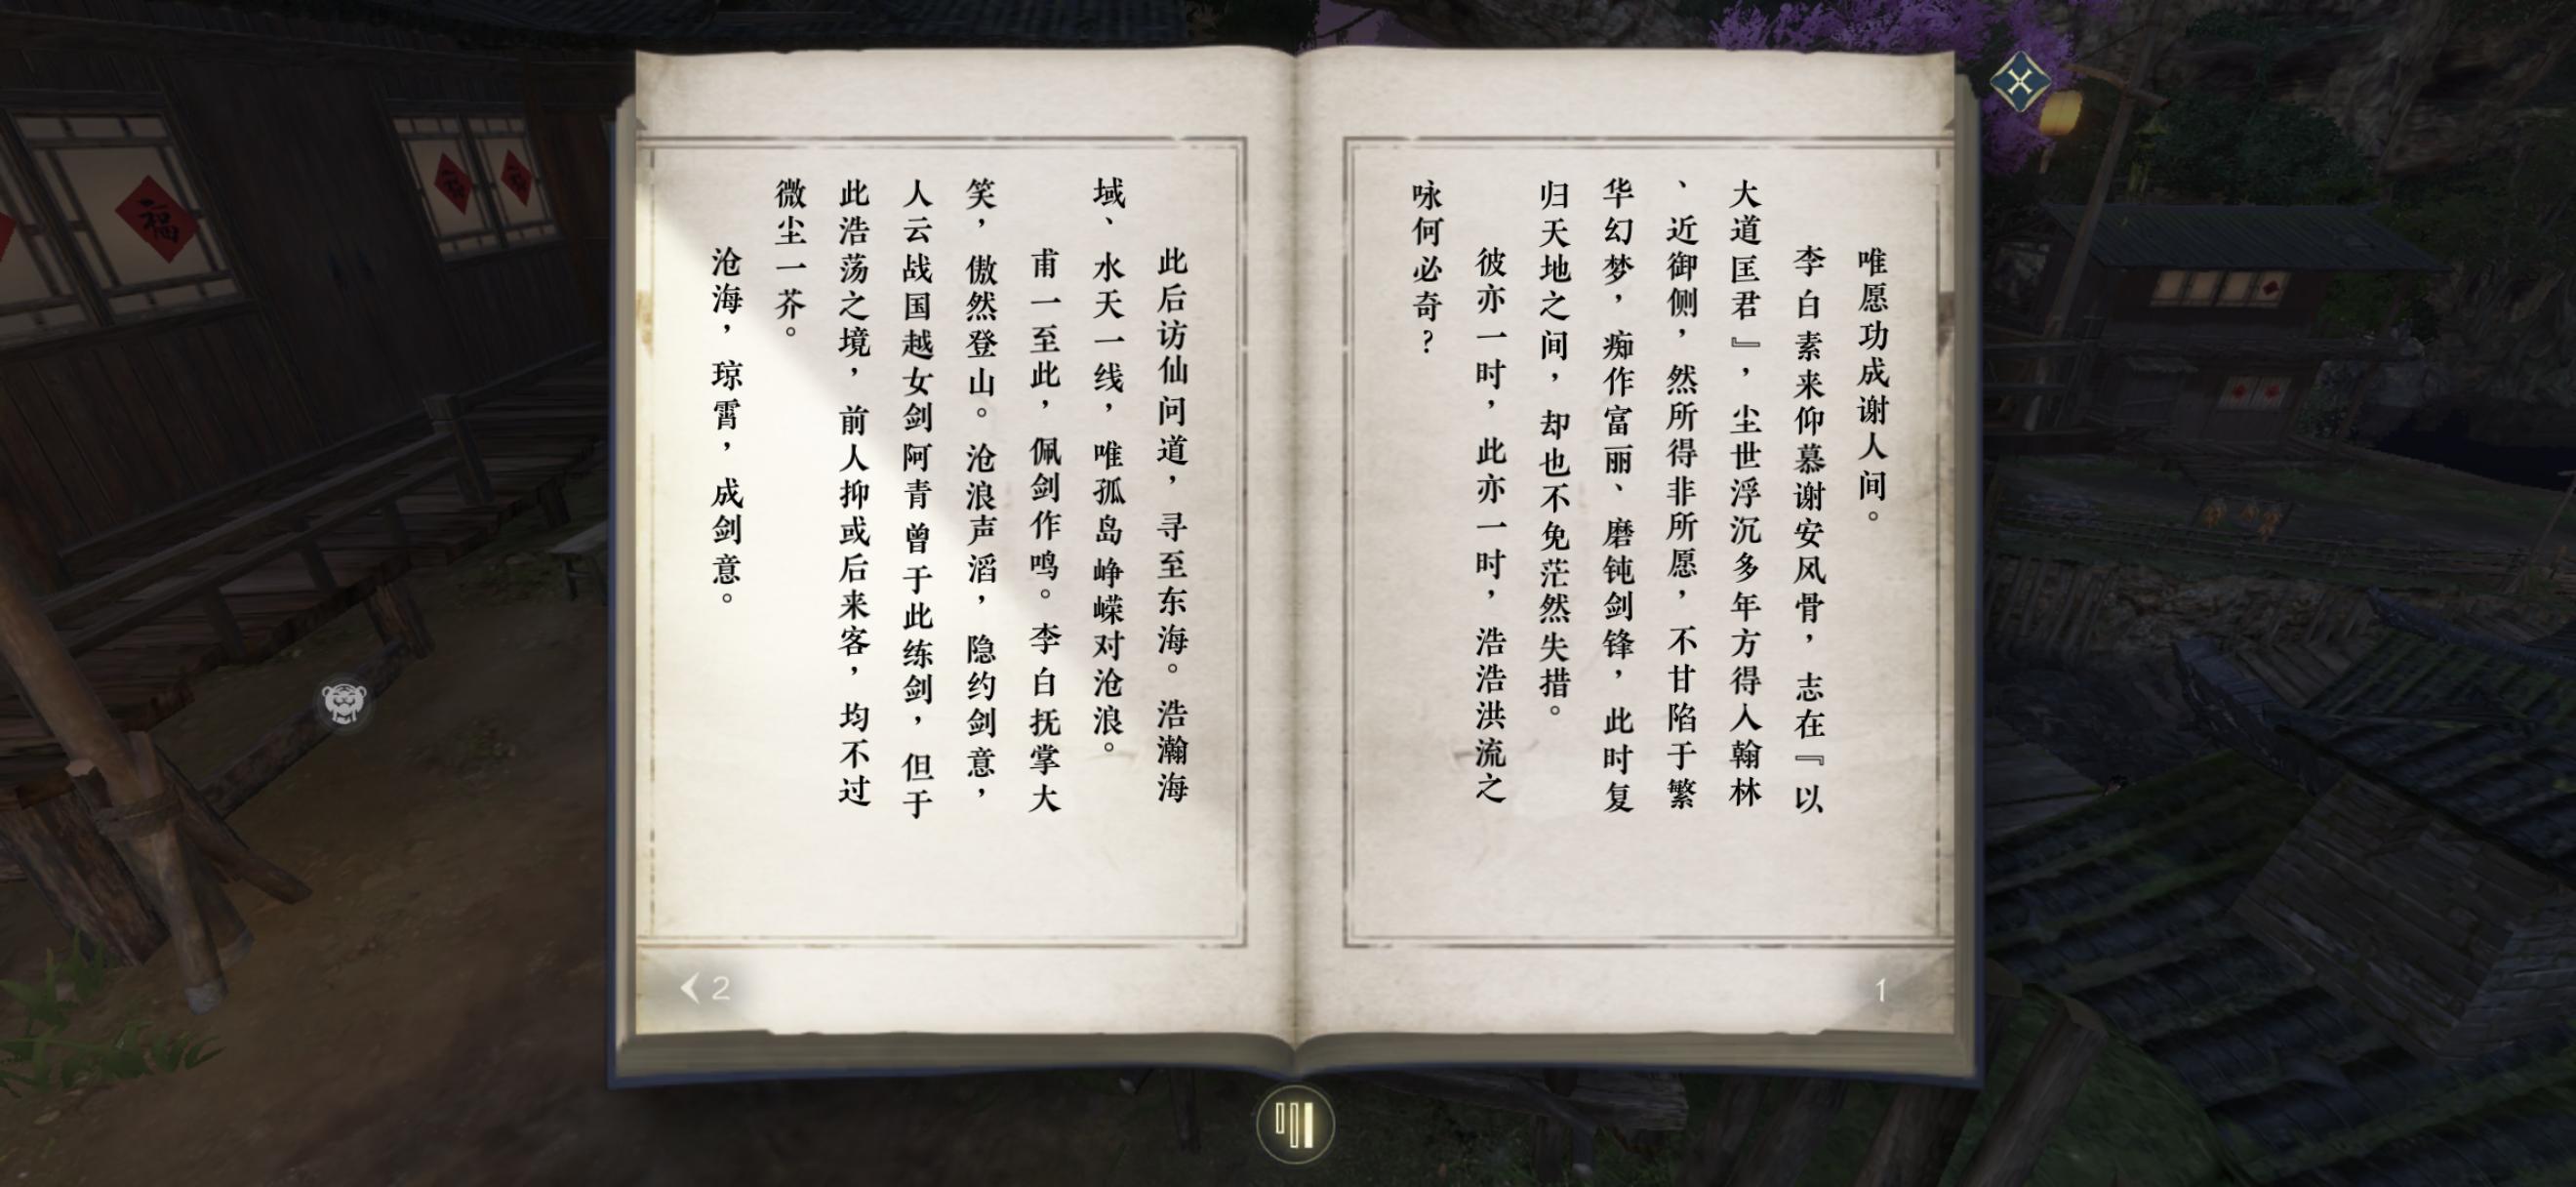 唯愿功成谢人间。
李白素来仰慕谢安风骨，志在『以
大道匡君』，尘世浮沉多年方得入翰林
、近御侧，然所得非所愿，不甘陷于繁
华幻梦，痴作富丽、磨钝剑锋，此时复
归天地之间，却也不免茫然失措。
彼亦一时，此亦一时，浩浩洪流之
咏何必奇？
此后访仙问道，寻至东海。浩瀚海
域、水天一线，唯孤岛峥嵘对沧浪。
甫一至此，佩剑作鸣。李白抚掌大
笑，傲然登山。沧浪声滔，隐约剑意，
人云战国越女剑阿青曾于此练剑，但于
此浩荡之境，前人抑或后来客，均不过
微尘一芥。
沧海，琼霄，成剑意。
2
1
福